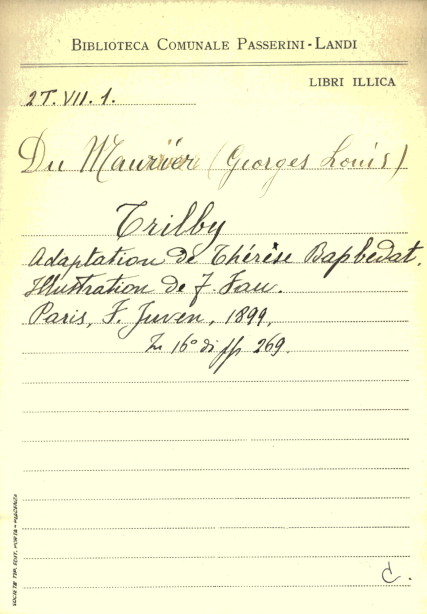 BIBLIOTECA COMUNALE PASSERINI-LANDI
LIBRI ILLICA
2T. VII. 1.
Du Maurier (Georges Louis)
Trilby
Adaptation de Thérèse Bapbedat.
Illustration de J. Fau.
Paris, F. Juven, 1899,
In 16° di pp 269.
C.